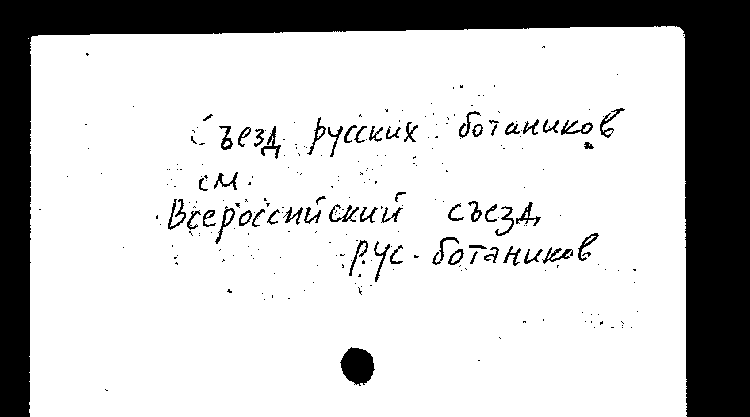 Съезд русских ботаников
см.
Всероссийский съезд
рус. ботаников